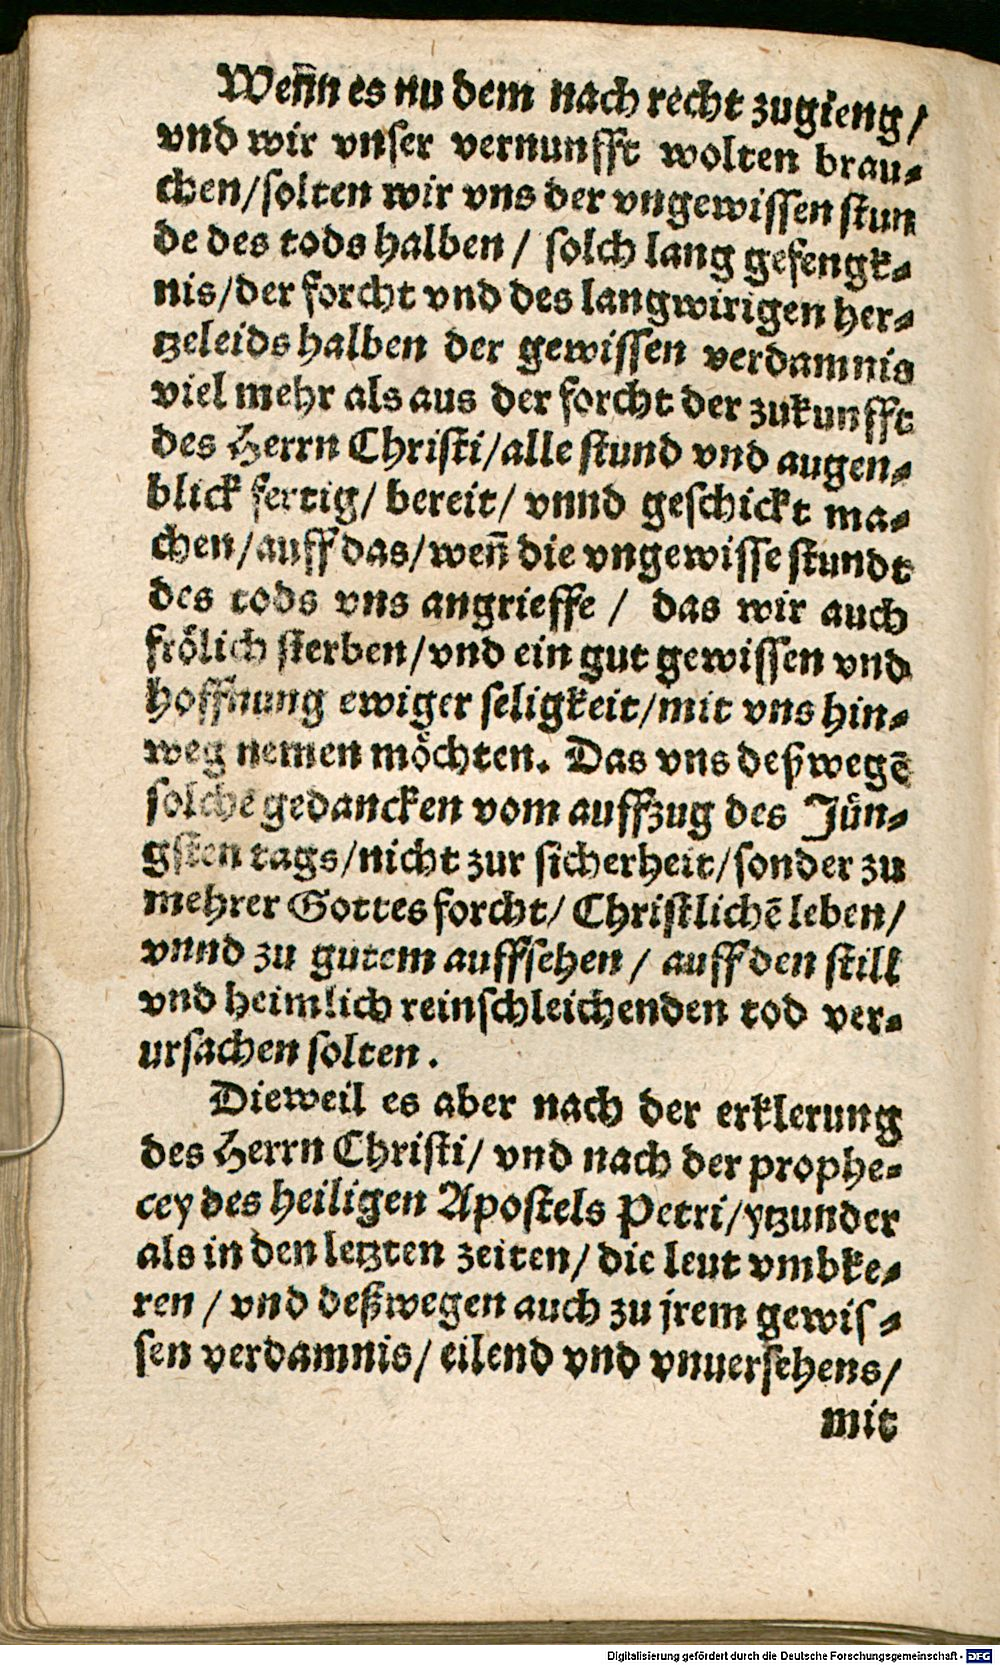 Weñn es nu dem nach recht zugieng/
vnd wir vnser vernunfft wolten brau⸗
chen/solten wir vns der vngewissen stun
de des tods halben / solch lang gefengk⸗
nis/der forcht vnd des langwirigen her⸗
tzeleids halben der gewissen verdamnis
viel mehr als aus der forcht der zukunfft
des Herrn Christi/alle stund vnd augen⸗
blick fertig/ bereit/ vnnd geschickt ma⸗
chen/auff das/weñ die vngewisse stundt
des tods vns angrieffe / das wir auch
frölich sterben/vnd ein gut gewissen vnd
hoffnung ewiger seligkeit/mit vns hin⸗
weg nemen möchten. Das vns deßwegē
solche gedancken vom auffzug des Jün⸗
gsten tags/nicht zur sicherheit/sonder zu
mehrer Gottes forcht/ Christlichē leben/
vnnd zu gutem auffsehen / auff den still
vnd heimlich reinschleichenden tod ver⸗
ursachen solten.
Dieweil es aber nach der erklerung
des Herrn Christi/ vnd nach der prophe⸗
cey des heiligen Apostels Petri/ytzunder
als in den letzten zeiten/ die leut vmbke⸗
ren / vnd deßwegen auch zu jrem gewis⸗
sen verdamnis/ eilend vnd vnuersehens/
mit
Digitalisierung gefördert durch die Deutsche Forschungsgemeinschaft - DFG